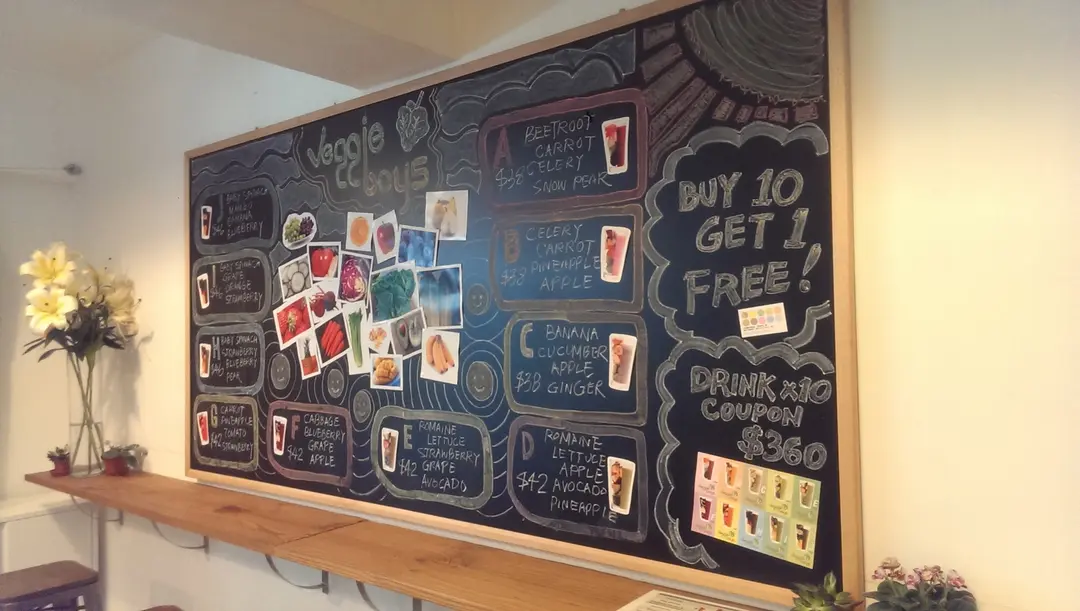 veggie
boys
J
BABY SPINACH
MANGO
BANANA
BLUEBERRY
$46
BABY SPINACH
GRAPE
ORANGE
STRAWBERRY
$46
H
BABY SPINACH
STRAWBERRY
BLUEBERRY
PEAR
$46
G
CARROT
PINEAPPLE
TOMATO
STRAWBERRY
$42
F
CABBAGE
BLUEBERRY
GRAPE
APPLE
$42
E
ROMAINE
LETTUCE
STRAWBERRY
GRAPE
AVOCADO
$42
A
BEETROOT
CARROT
CELERY
SNOW PEAR
$38
B
CELERY
CARROT
PINEAPPLE
APPLE
$38
C
BANANA
CUCUMBER
APPLE
GINGER
$38
D
ROMAINE
LETTUCE
APPLE
AVOCADO
PINEAPPLE
$42
BUY 10
GET 1
FREE!
DRINK x10
COUPON
$360